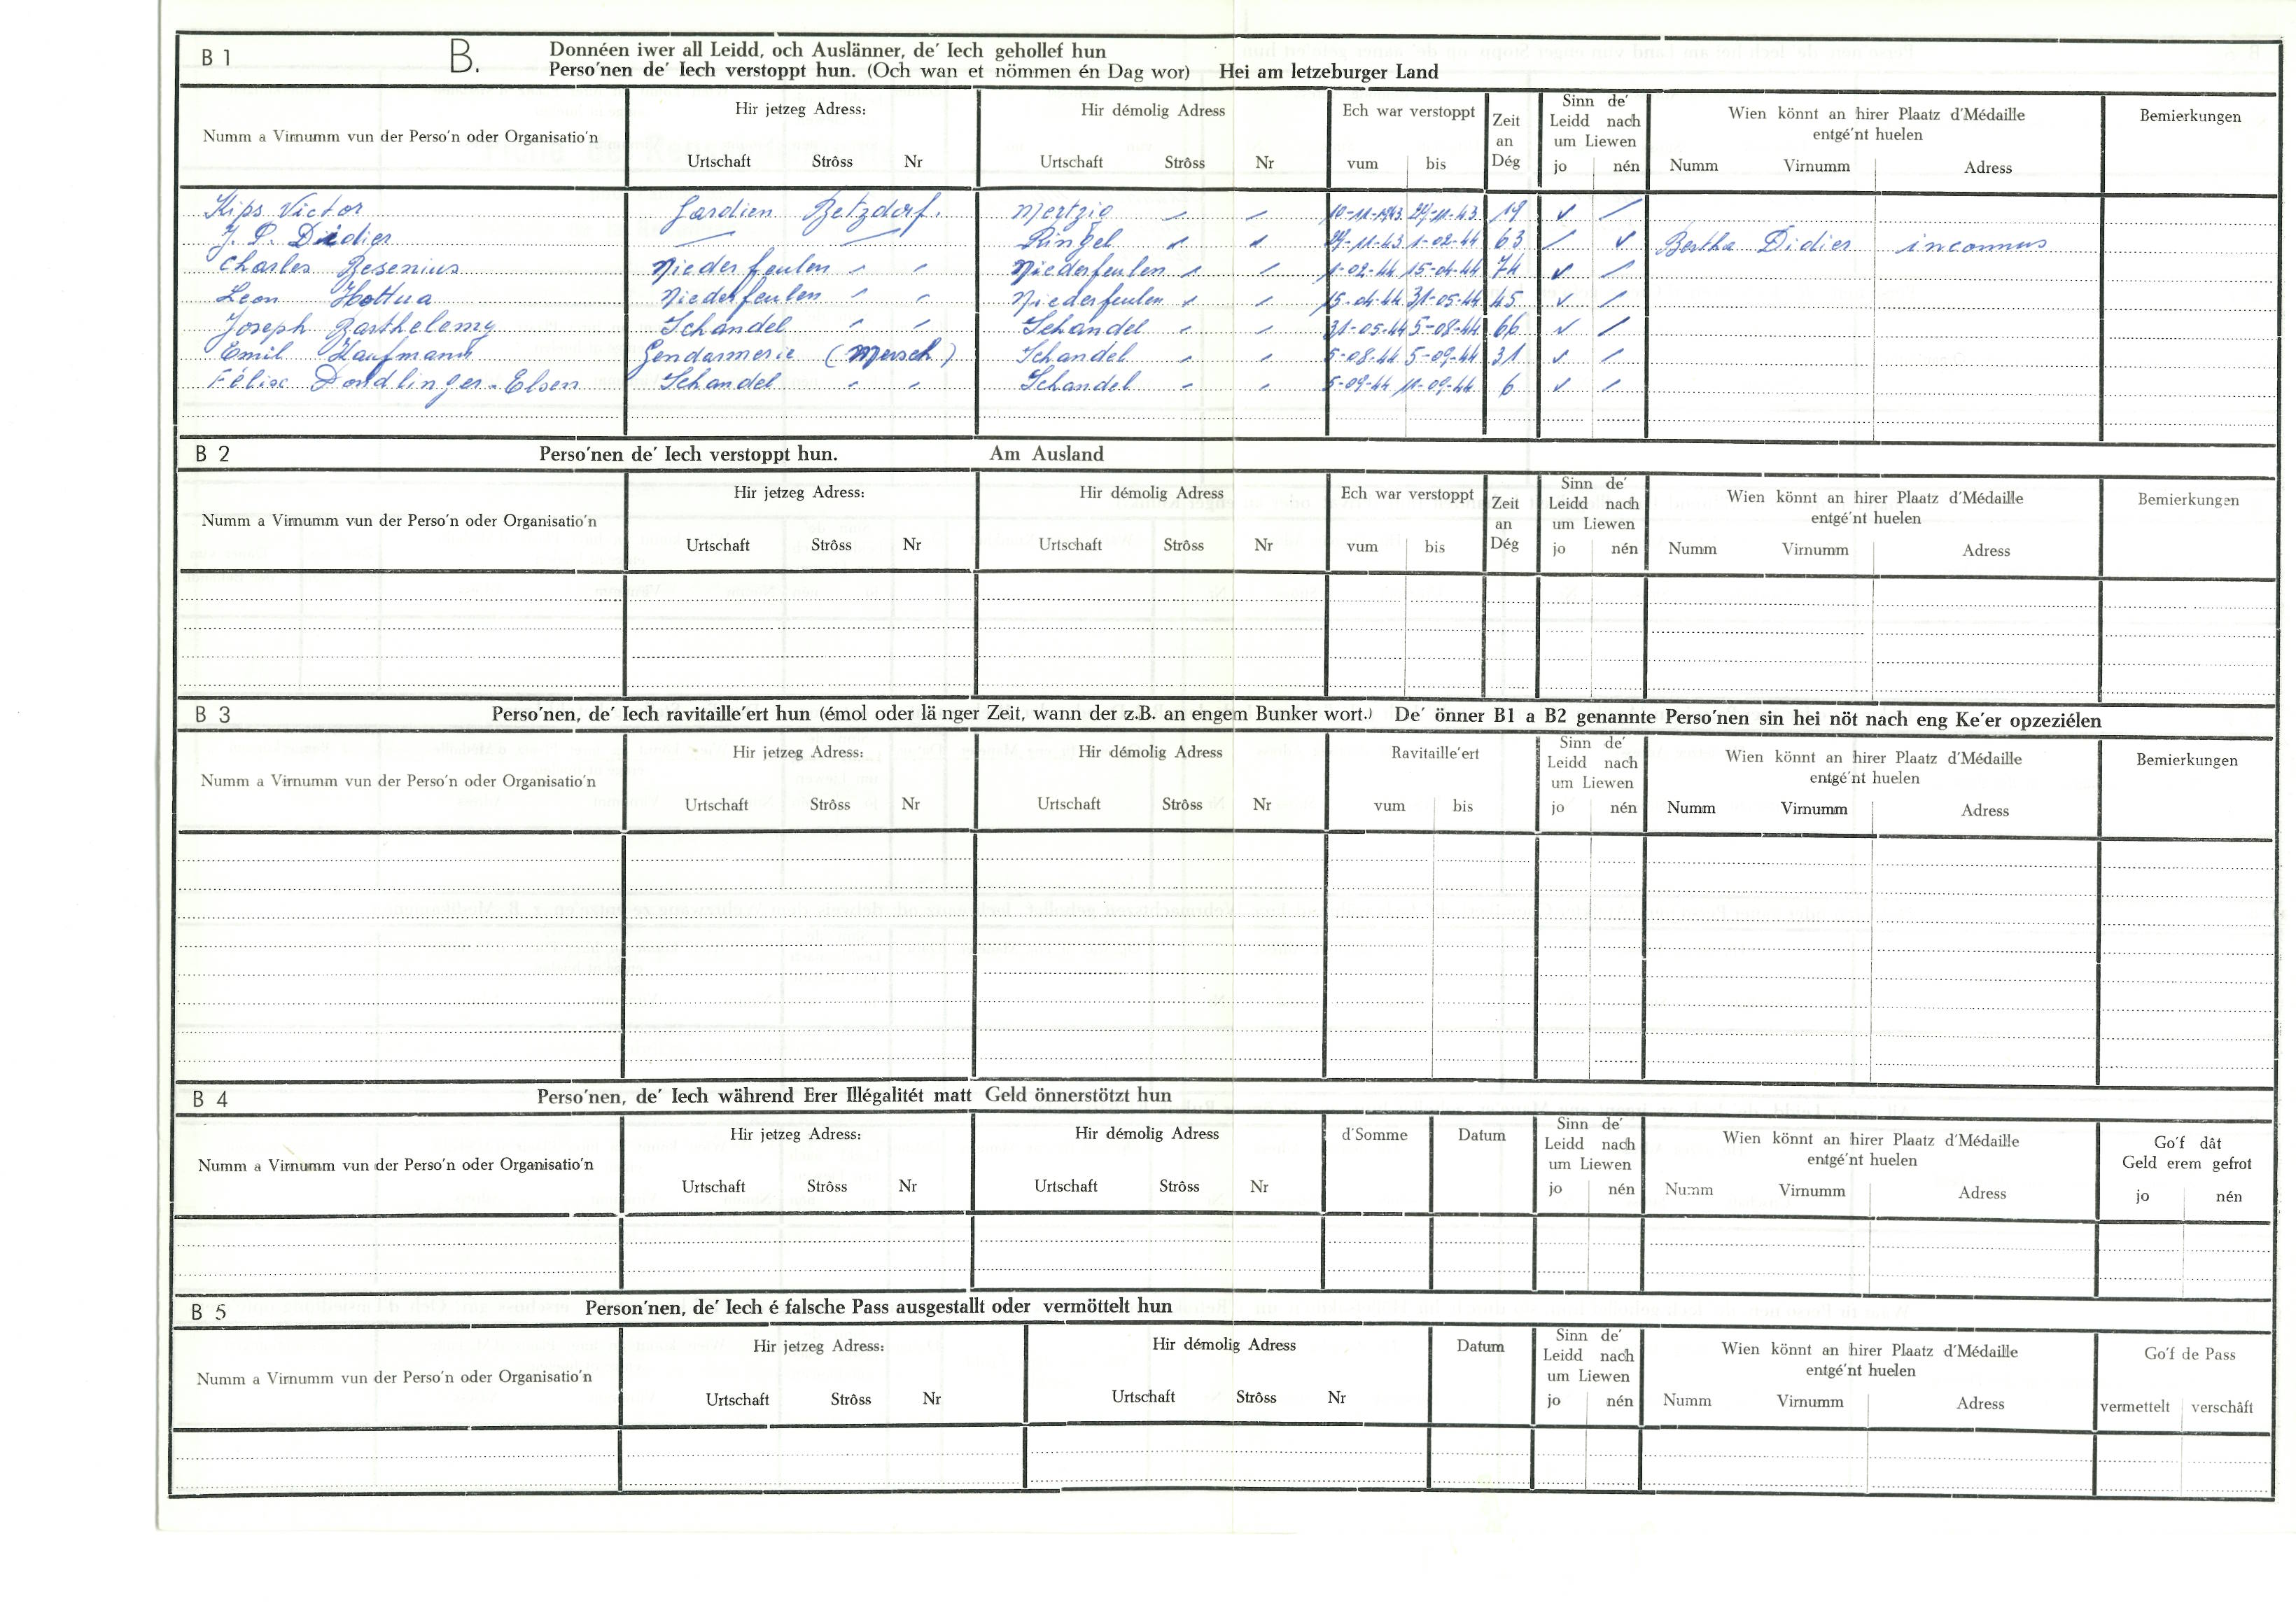 B 1 B. Donnéen iwer all Leidd, och Auslänner, de' Iech gehollef hun
Perso'nen de' Iech verstoppt hun. (Och wan et nömmen én Dag wor) Hei am letzeburger Land
Numm a Virnumm vun der Perso'n oder Organisatio'n
Hir jetzeg Adress:
Urtschaft Strôss Nr
Hir démolig Adress
Urtschaft Strôss Nr
Ech war verstoppt
vum bis
Zeit
an
Dég
Sinn de'
Leidd nach
um Liewen
jo nén
Wien könnt an hirer Plaatz d'Médaille
entgé'nt huelen
Numm Virnumm Adress
Bemierkungen
Kips Victor Gardien Betzdorf. Mertzig 10-11-1943 29-11-43 19 ✓ /
J. P. Didier Ringel 29-11-43 1-02-44 63 / ✓ Bertha Didier inconnus
Charles Besenius Niederfeulen Niederfeulen 1-02-44 15-04-44 74 ✓ /
Leon Hottua Niederfeulen Niederfeulen 15-04-44 31-05-44 45 ✓ /
Joseph Barthelemy Schandel Schandel 31-05-44 5-08-44 66 ✓ /
Emil Kaufmann Gendarmerie (Mersch) Schandel 5-08-44 5-09-44 31 ✓ /
Félix Dondlinger-Elsen Schandel Schandel 5-09-44 11-09-44 6 ✓ /
B 2 Perso'nen de' Iech verstoppt hun. Am Ausland
Numm a Virnumm vun der Perso'n oder Organisatio'n
Hir jetzeg Adress:
Urtschaft Strôss Nr
Hir démolig Adress
Urtschaft Strôss Nr
Ech war verstoppt
vum bis
Zeit
an
Dég
Sinn de'
Leidd nach
um Liewen
jo nén
Wien könnt an hirer Plaatz d'Médaille
entgé'nt huelen
Numm Virnumm Adress
Bemierkungen
B 3 Perso'nen, de' Iech ravitaille'ert hun (émol oder länger Zeit, wann der z.B. an engem Bunker wort.) De' önner B1 a B2 genannte Perso'nen sin hei nöt nach eng Ke'er opzeziélen
Numm a Virnumm vun der Perso'n oder Organisatio'n
Hir jetzeg Adress:
Urtschaft Strôss Nr
Hir démolig Adress
Urtschaft Strôss Nr
Ravitaille'ert
vum bis
Sinn de'
Leidd nach
um Liewen
jo nén
Wien könnt an hirer Plaatz d'Médaille
entgé'nt huelen
Numm Virnumm Adress
Bemierkungen
B 4 Perso'nen, de' Iech während Erer Illégalitét matt Geld önnerstötzt hun
Numm a Virnumm vun der Perso'n oder Organisatio'n
Hir jetzeg Adress:
Urtschaft Strôss Nr
Hir démolig Adress
Urtschaft Strôss Nr
d'Somme
Datum
Sinn de'
Leidd nach
um Liewen
jo nén
Wien könnt an hirer Plaatz d'Médaille
entgé'nt huelen
Numm Virnumm Adress
Go'f dât
Geld erem gefrot
jo nén
B 5 Person'nen, de' Iech é falsche Pass ausgestallt oder vermöttelt hun
Numm a Virnumm vun der Perso'n oder Organisatio'n
Hir jetzeg Adress:
Urtschaft Strôss Nr
Hir démolig Adress
Urtschaft Strôss Nr
Datum
Sinn de'
Leidd nach
um Liewen
jo nén
Wien könnt an hirer Plaatz d'Médaille
entgé'nt huelen
Numm Virnumm Adress
Go'f de Pass
vermettelt verschâft